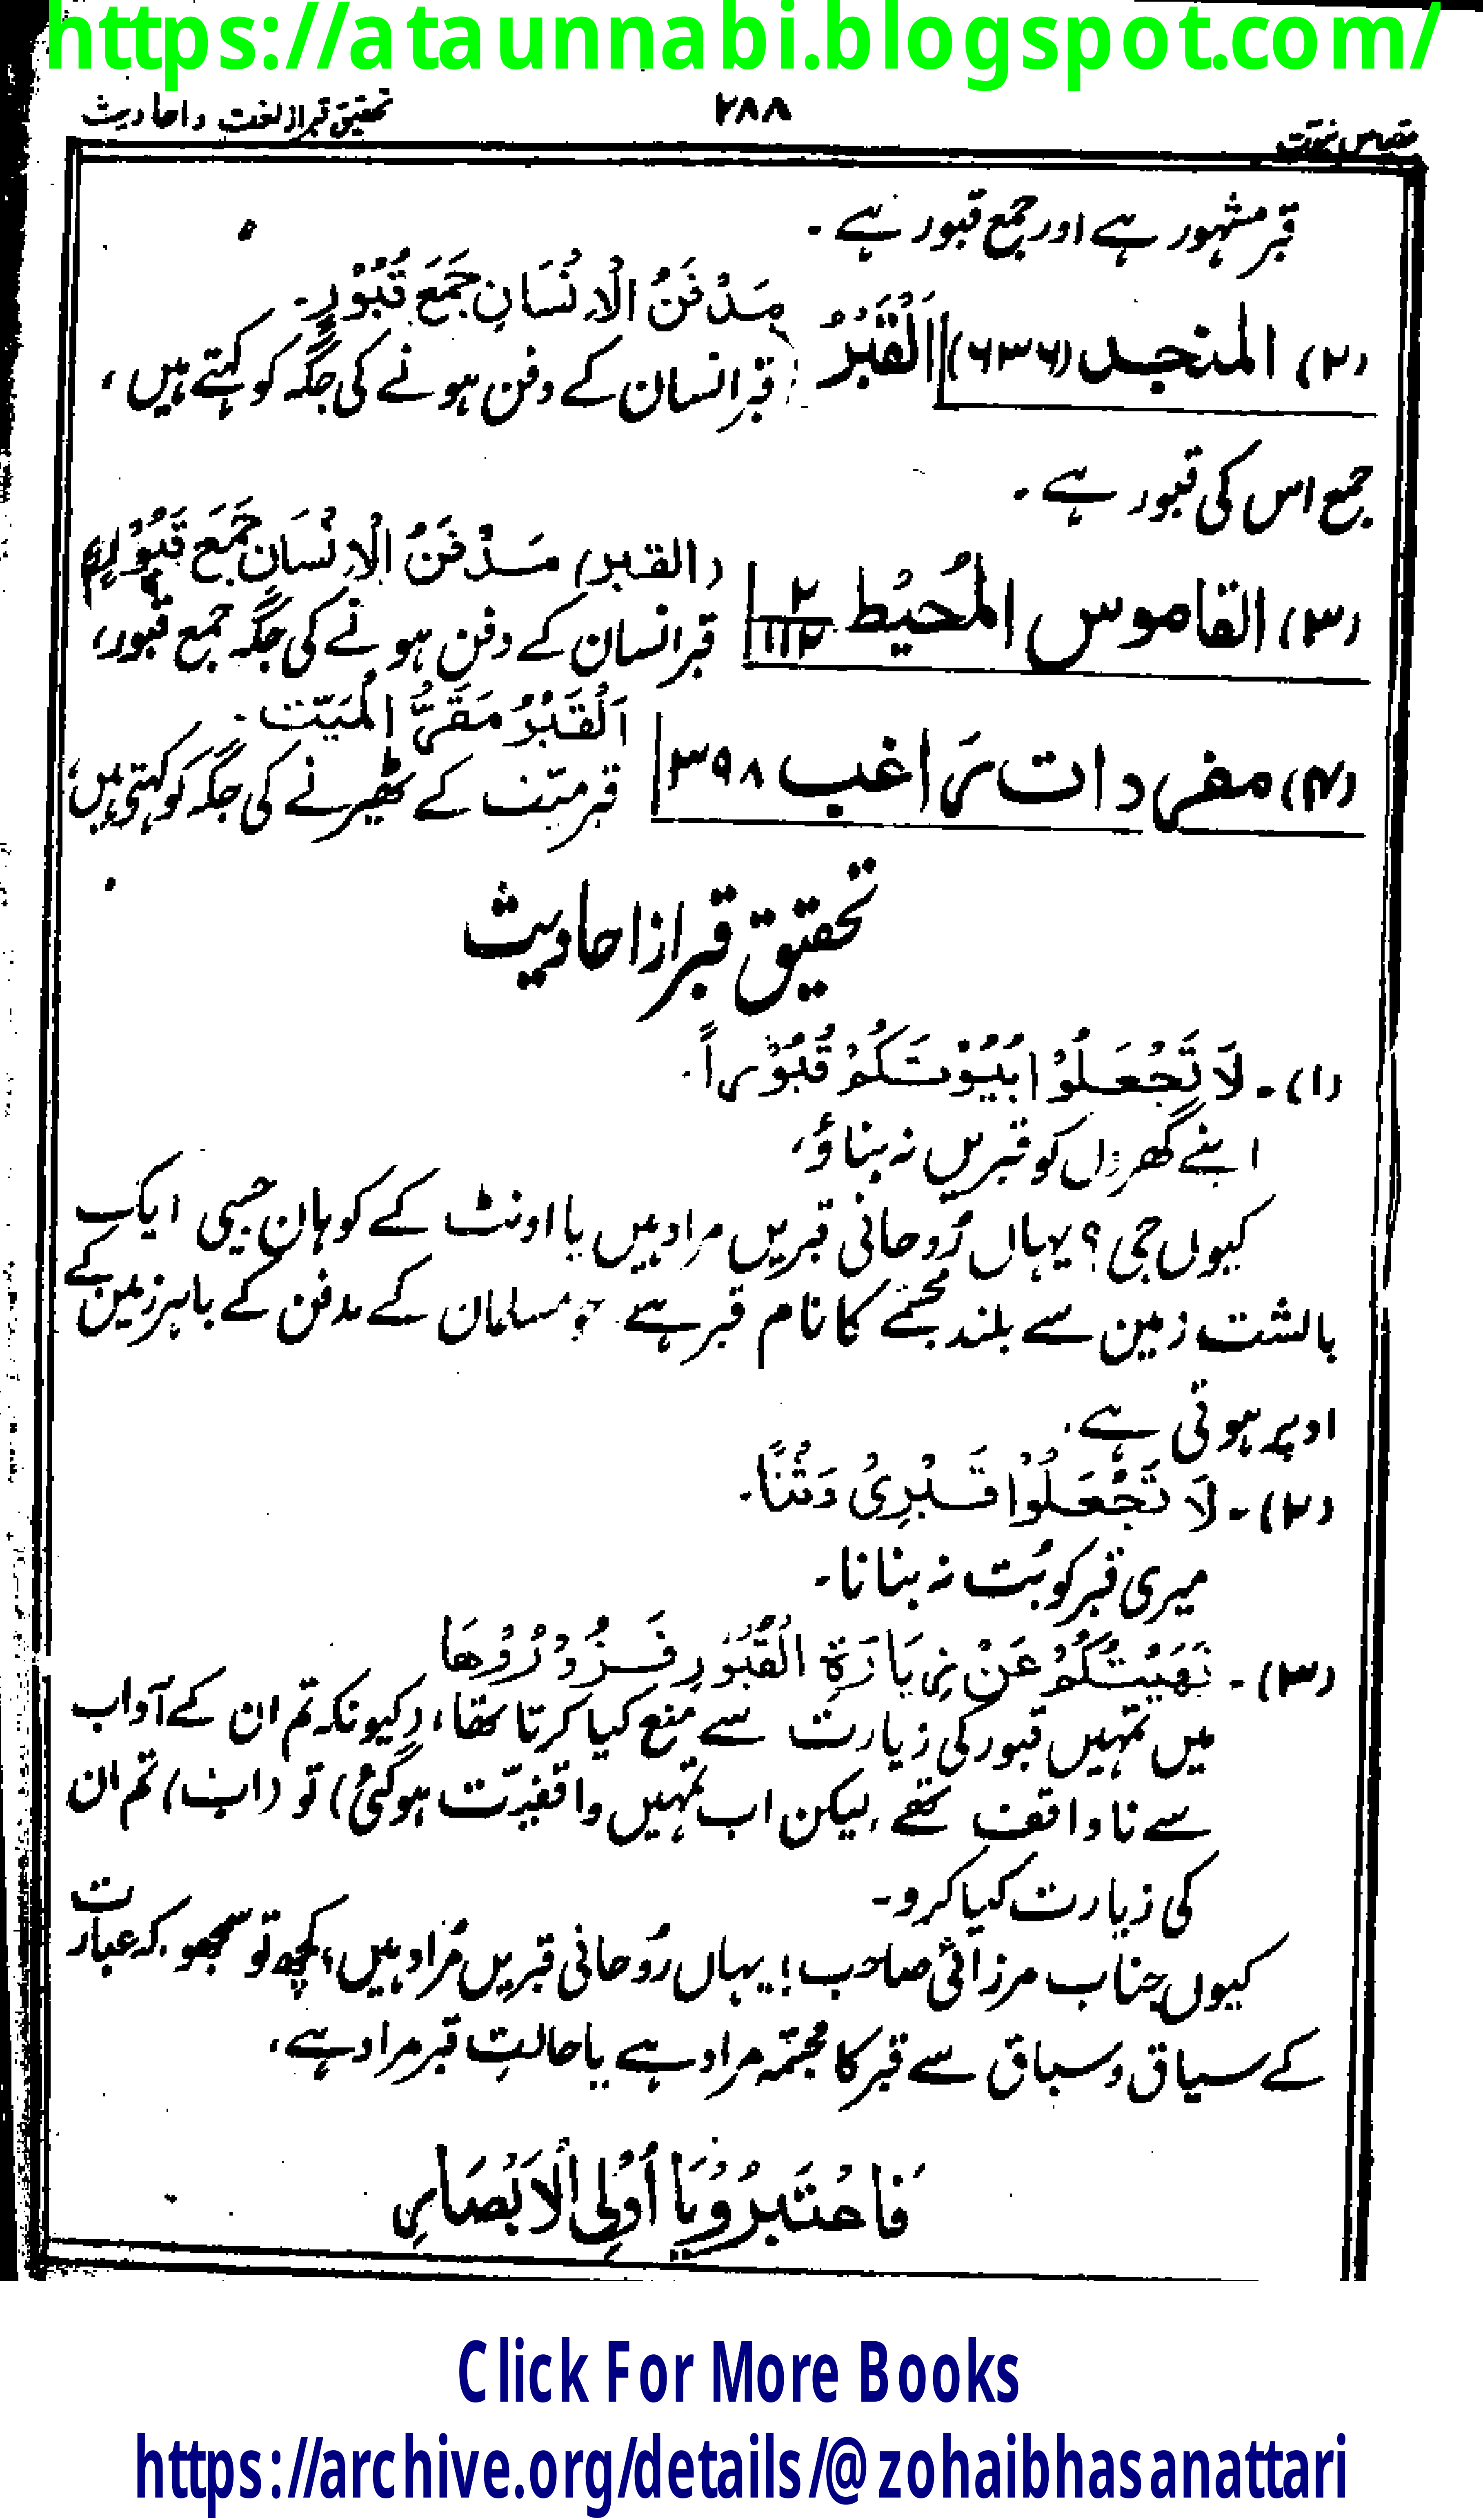 https://ataunnabi.blogspot.com/
مقیاس نبوت ۲۸۸ تحقیق قبر از لغت و احادیث
قبر مشہور ہے اور جمع قبور ہے ۔
(۲) المنجد (۶۳۶) اَلْقَبْرُ مَدْفَنُ الْاِنْسَانِ جَمَعَ قُبُوْرٍ۔
قبر انسان کے دفن ہونے کی جگہ کو کہتے ہیں ،
جمع اس کی قبور ہے ۔
(۳) القاموس المُحیْط ۲/۱۱۲ (القبر) مَدْفَنُ الْاِنْسَانِ جَمَعَ قُبُوْر
قبر انسان کے دفن ہونے کی جگہ جمع قبور،
(۴) مفردات راغب ۳۹۸ اَلْقَبْرُ مَقَرُّ الْمَیِّت ۔
قبر میّت کے ٹھیرنے کی جگہ کو کہتی ہیں،
تحقیق قبر از احادیث
(۱)۔ لَا تَجْعَلُوْا بُیُوْتَکُمْ قُبُوْراً ۔
اپنے گھروں کو قبریں نہ بناؤ ،
کیوں جی ؟ یہاں رُوحانی قبریں مراد ہیں یا اونٹ کے کوہان جیسی ایک
بالشت زمین سے بلند مجسّمے کا نام قبر ہے جو مسلمان کے مدفن کے باہر زمین کے
اوپر ہوتی ہے ۔
(۲)۔ لَا تَجْعَلُوْا قَبْرِیْ وَثَنًا ۔
میری قبر کو بُت نہ بنانا ۔
(۳)۔ نَهَیْتُکُمْ عَنْ زِیَارَةِ الْقُبُوْرِ فَزُوْرُوْهَا
میں تمہیں قبور کی زیارت سے منع کیا کرتا تھا ، (کیونکہ تم ان کے آداب
سے ناواقف تھے ، لیکن اب تمہیں واقفیّت ہوگئی) تو (اب) تم ان
کی زیارت کیا کرو ۔
کیوں جناب مرزائی صاحب ! یہاں رُوحانی قبریں مُراد ہیں ، کچھ تو سمجھو ، کہ عبارت
کے سیاق و سباق سے قبر کا مجسّمہ مراد ہے یا حالتِ قبر مراد ہے ،
فَاعْتَبِرُوْا یَا اُولِی الْاَبْصَارِ
Click For More Books
https://archive.org/details/@zohaibhasanattari